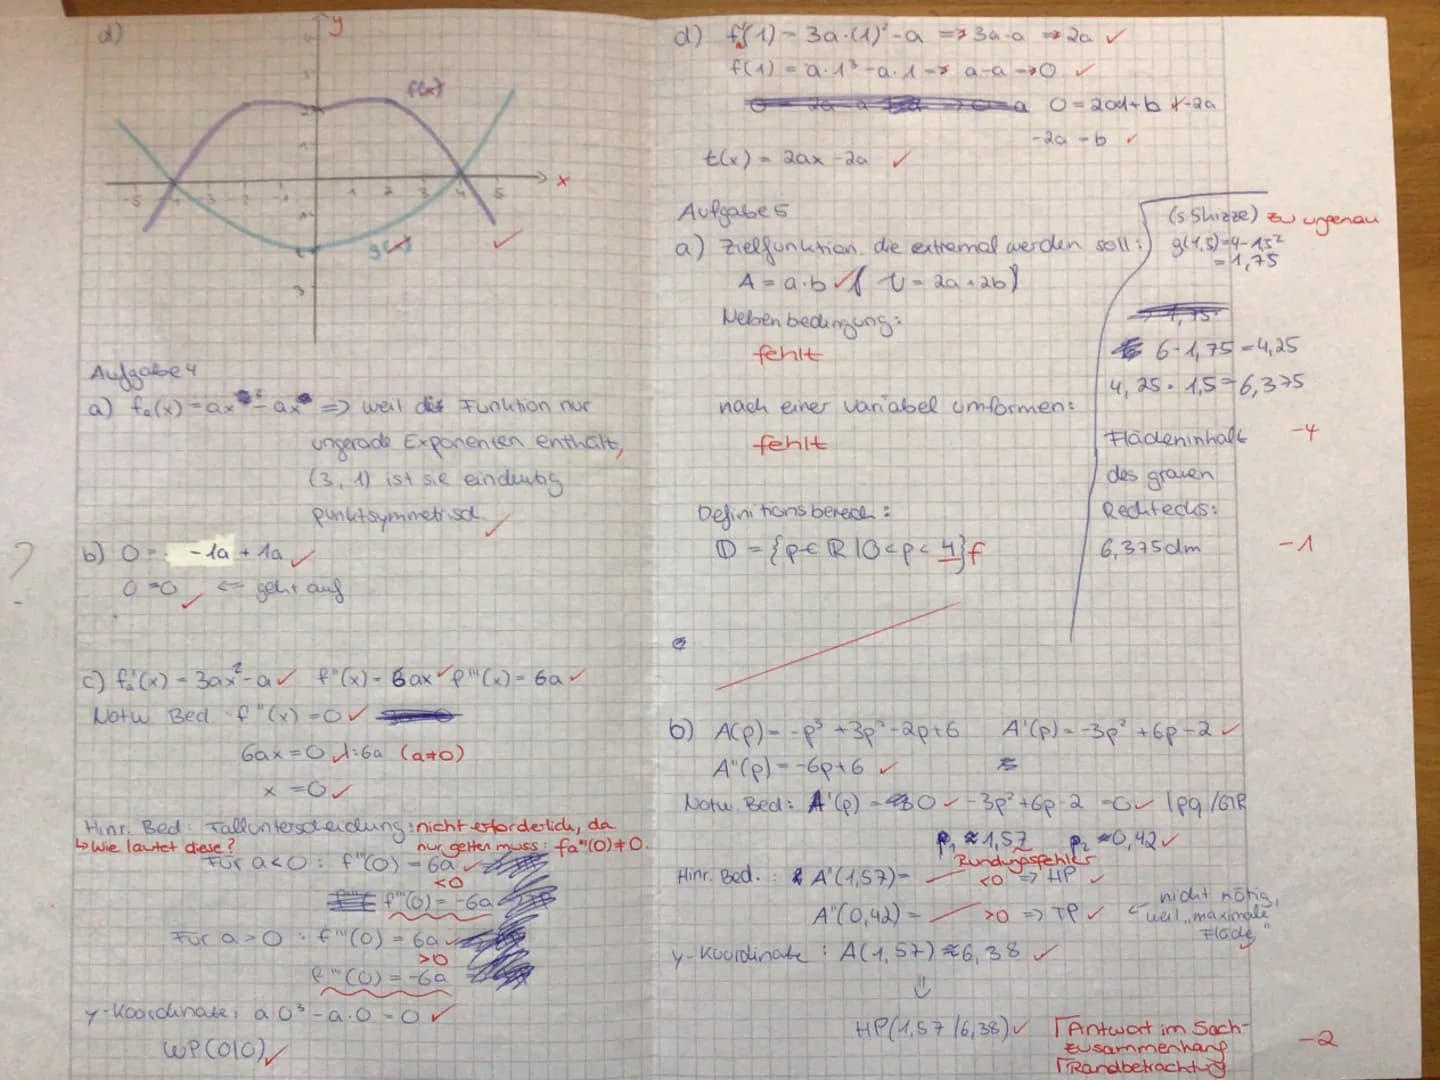 d)
y
f(x)
x
-5 -4 -3 -2 -1 1 2 3 4 5
g(x)
Aufgabe 4
a) fₐ(x) = ax³ - ax => weil die Funktion nur
ungerade Exponenten enthält,
(3, 1) ist sie eindeutig
punktsymmetrisch.
?
b) 0 = -1a + 1a
0 = 0 <= geht auf
c) fₐ'(x) = 3ax² - a f''(x) = 6ax f'''(x) = 6a
Notw. Bed. f''(x) = 0
6ax = 0 |:6a (a≠0)
x = 0
Hinr. Bed. Fallunterscheidung: nicht erforderlich, da
↳ Wie lautet diese? nur gelten muss: fa'''(0) ≠ 0.
Für a<0: f'''(0) = 6a
<0
f'''(0) = -6a
Für a>0: f'''(0) = 6a
>0
f'''(0) = -6a
y-Koordinate: a·0³ - a·0 = 0
WP(0|0)
d) fₐ'(1) = 3a·(1)² - a => 3a-a => 2a
f(1) = a·1³ - a·1 => a-a => 0
0 = 2a·1+b |-2a
-2a = b
t(x) = 2ax - 2a
Aufgabe 5
a) Zielfunktion, die extremal werden soll:
A = a·b ( U = 2a+2b)
Nebenbedingung:
fehlt
nach einer Variabel umformen:
fehlt
Definitionsbereich:
𝔻 = {p ∈ ℝ | 0 < p < 4} f
(s. Skizze) zu ungenau
g(1,5) = 4 - 1,5²
= 1,75
6 - 1,75 = 4,25
4,25 · 1,5 = 6,375
Flächeninhalt -4
des grauen
Rechtecks:
6,375dm -1
b) A(p) = -p³ + 3p² - 2p + 6 A'(p) = -3p² + 6p - 2
A''(p) = -6p + 6
Notw. Bed: A'(p) = 0 -3p² + 6p - 2 = 0 |pq/GTR
p₁ ≈ 1,57 p₂ ≈ 0,42
Rundungsfehler
Hinr. Bed.: A''(1,57) = <0 => HP
A''(0,42) = >0 => TP ← nicht nötig,
weil "maximale
Fläche"
y-Koordinate: A(1,57) ≈ 6,38
HP(1,57/6,38) Γ Antwort im Sach-
zusammenhang -2
Γ Randbetrachtung